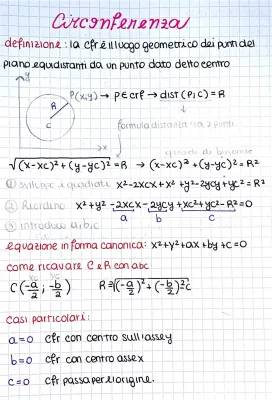 Circonferenza
definizione: la cfr è il luogo geometrico dei punti del
piano equidistanti da un punto dato detto centro
y
P(x,y) → p∈crf → dist (P;C) = R
R
C
x
formula distanza tra 2 punti
√(x-xc)²+(y-yc)² = R → (x-xc)²+(y-yc)² = R²
① sviluppo quadrati x²-2xcx+x²+y²-2ycy+yc² = R²
② Riordino x²+y²-2xcx-2ycy+xc²+yc²-R²=0
③ introduco a,b,c a b c
equazione in forma canonica: x²+y²+ax+by+c=0
come ricavare C e R con abc
C(-a/2; -b/2) R=√(-a/2)²+(-b/2)²-c
casi particolari:
a=0 cfr con centro sull'asse y
b=0 cfr con centro asse x
c=0 cfr passa per l'origine.